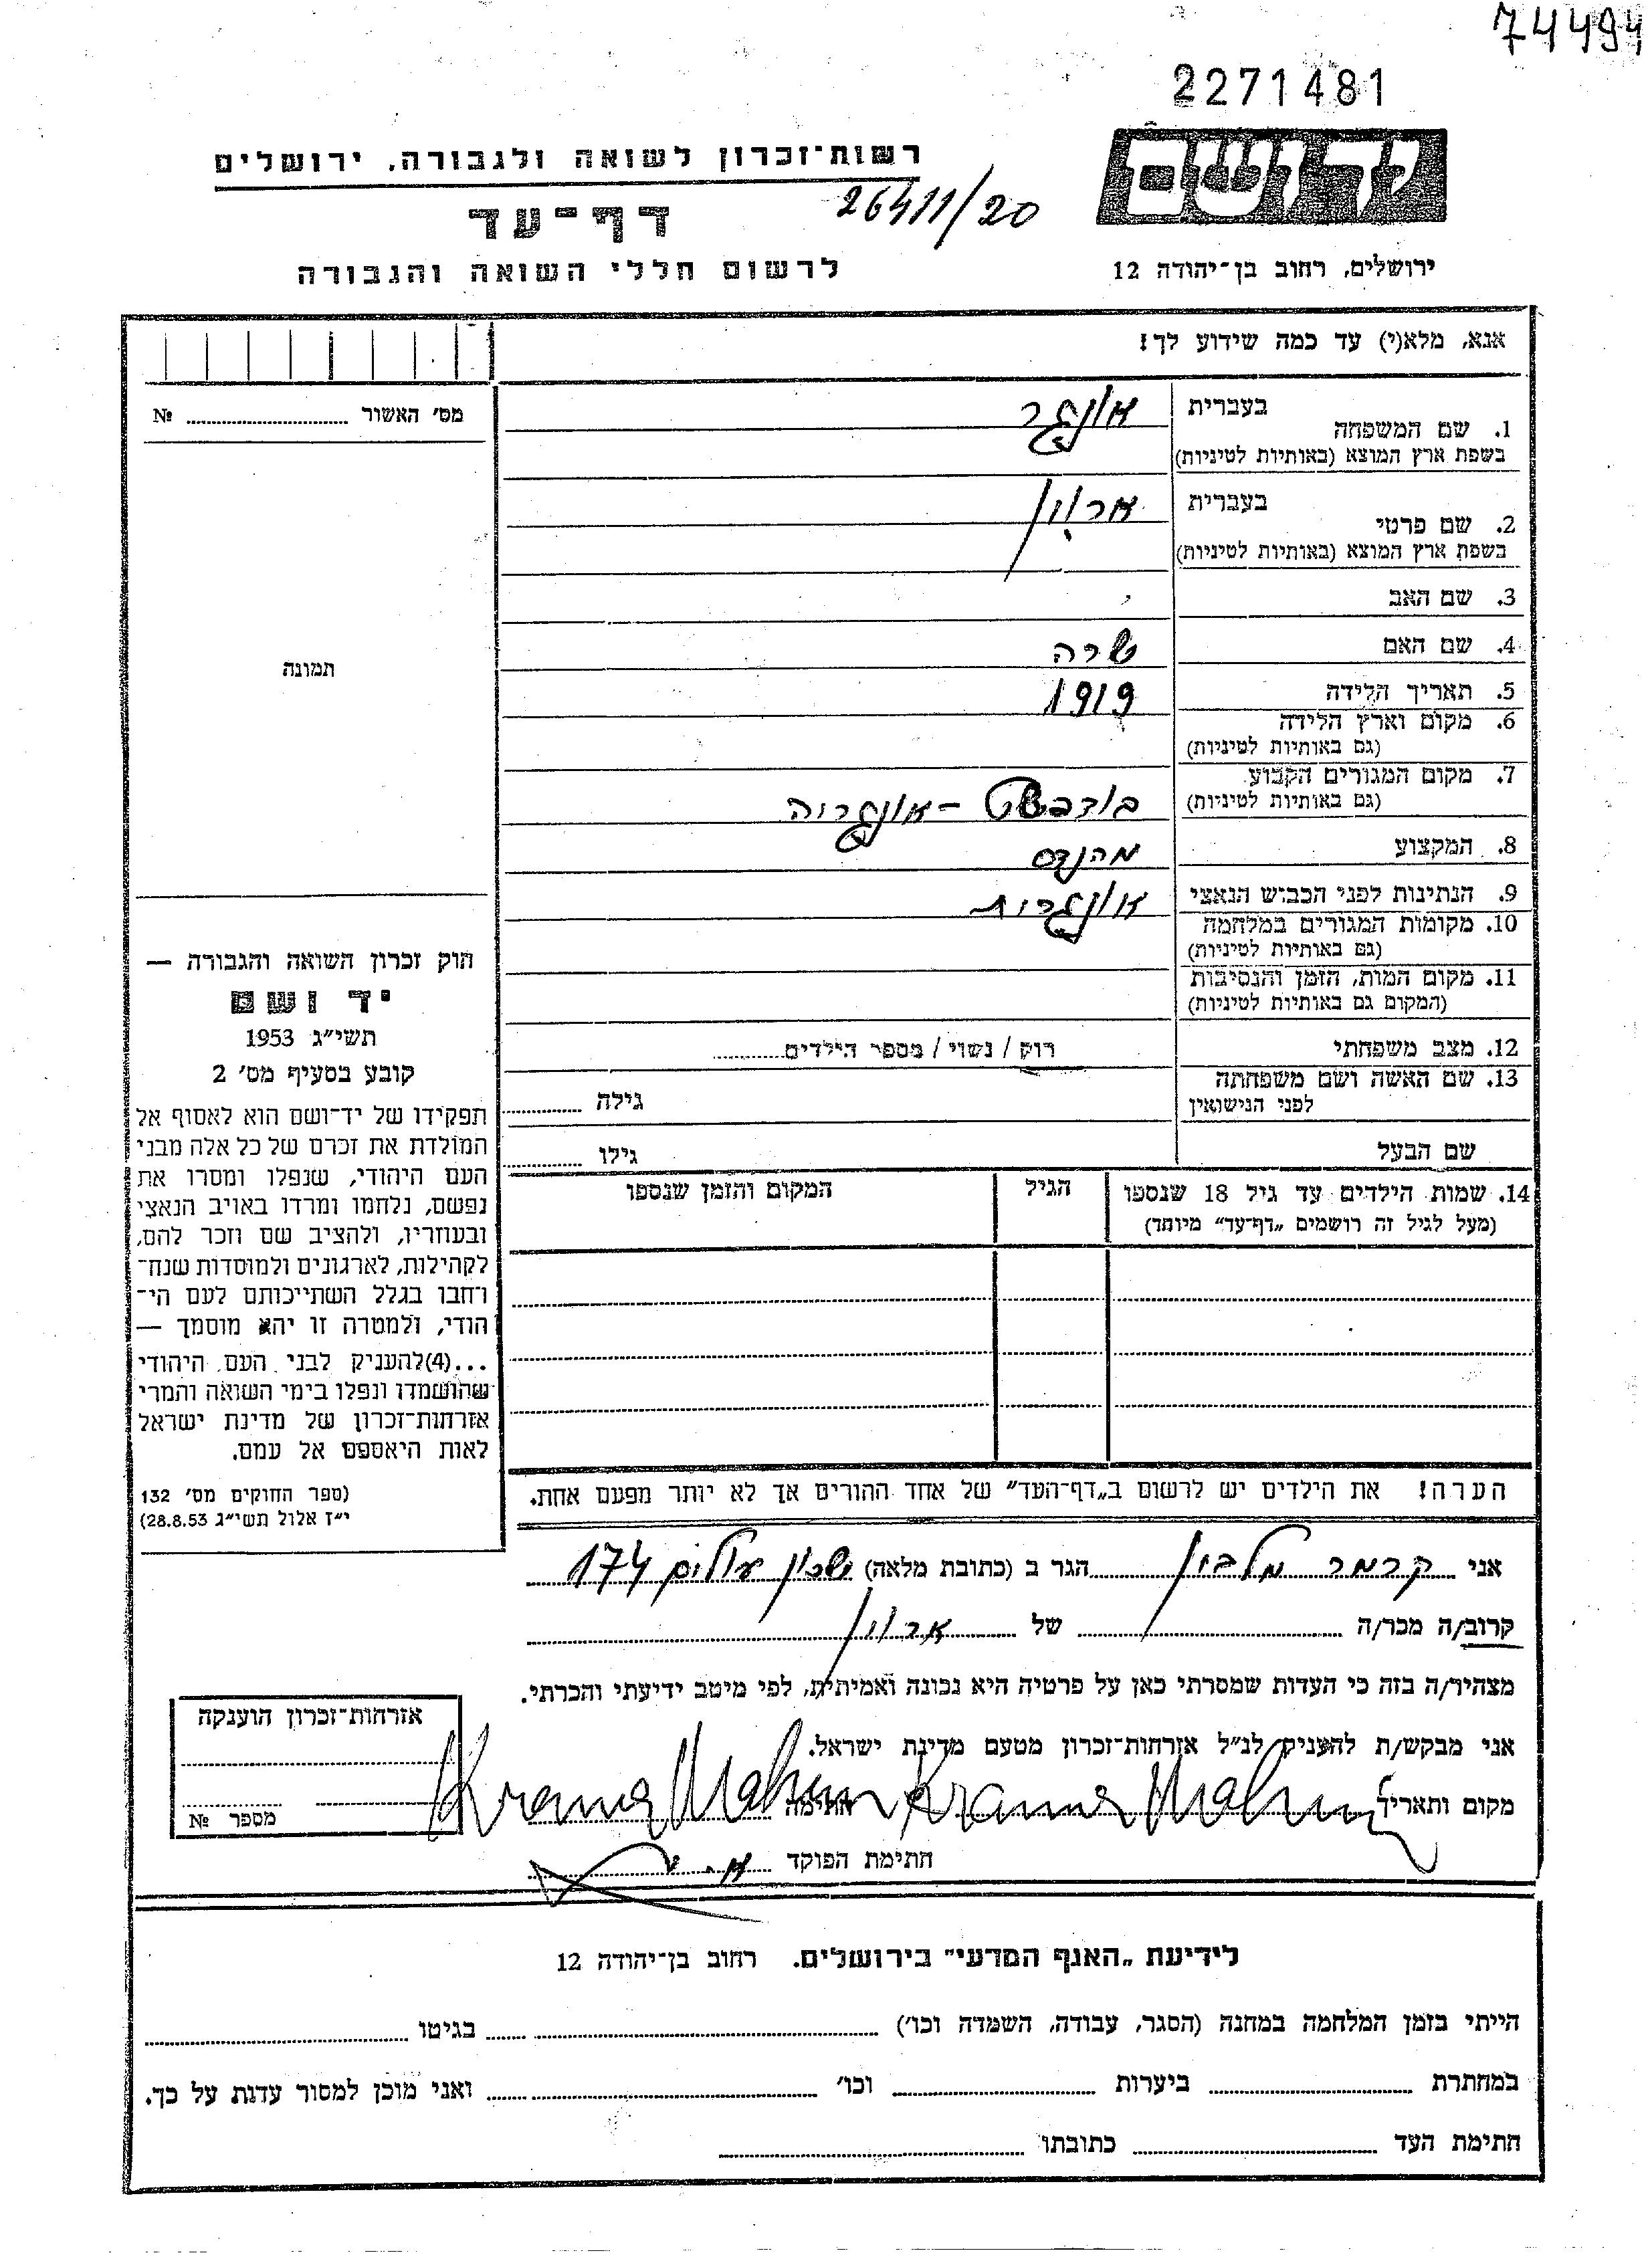 74494
2271481
ידושם
רשות־זכרון לשואה ולגבורה, ירושלים
26411/20
דף־עד
ירושלים, רחוב בן־יהודה 12
לרשום חללי השואה והגבורה
אנא, מלא(י) עד כמה שידוע לך!
מס׳ האשור ........ №
בעברית אונגר
1. שם המשפחה
בשפת ארץ המוצא (באותיות לטיניות)
בעברית ארוין
2. שם פרטי
בשפת ארץ המוצא (באותיות לטיניות)
3. שם האב
4. שם האם שרה
5. תאריך הלידה 1919
6. מקום וארץ הלידה
(גם באותיות לטיניות)
7. מקום המגורים הקבוע
(גם באותיות לטיניות) בודפשט - אונגריה
8. המקצוע מהנדס
9. הנתינות לפני הכבוש הנאצי אונגרית
10. מקומות המגורים במלחמה
(גם באותיות לטיניות)
11. מקום המות, הזמן והנסיבות
(המקום גם באותיות לטיניות)
12. מצב משפחתי רוק / נשוי / מספר הילדים........
13. שם האשה ושם משפחתה
לפני הנישואין גילה ........
שם הבעל גילו ........
14. שמות הילדים עד גיל 18 שנספו הגיל המקום והזמן שנספו
(מעל לגיל זה רושמים „דף־עד" מיוחד)
הערה! את הילדים יש לרשום ב„דף־העד" של אחד ההורים אך לא יותר מפעם אחת.
תמונה
חוק זכרון השואה והגבורה —
יד ושם
תשי״ג 1953
קובע בסעיף מס׳ 2
תפקידו של יד־ושם הוא לאסוף אל
המולדת את זכרם של כל אלה מבני
העם היהודי, שנפלו ומסרו את
נפשם, נלחמו ומרדו באויב הנאצי
ובעוזריו, ולהציב שם וזכר להם,
לקהילות, לארגונים ולמוסדות שנח־
רחבו בגלל השתייכותם לעם הי־
הודי, ולמטרה זו יהא מוסמך —
...(4)להעניק לבני העם היהודי
שהושמדו ונפלו בימי השואה והמרי
אזרחות־זכרון של מדינת ישראל
לאות היאספם אל עמם.
(ספר החוקים מס׳ 132
י״ז אלול תשי״ג 28.8.53)
אני קרמר מלבין הגר ב (כתובת מלאה) שכון עולים 174
קרוב/ה מכר/ה ........ של ארוין
מצהיר/ה בזה כי העדות שמסרתי כאן על פרטיה היא נכונה ואמיתית, לפי מיטב ידיעתי והכרתי.
אני מבקש/ת להעניק לנ״ל אזרחות־זכרון מטעם מדינת ישראל.
מקום ותאריך ........ חתימה ........
חתימת הפוקד
אזרחות־זכרון הוענקה
מספר №
לידיעת „האגף המדעי" בירושלים. רחוב בן־יהודה 12
הייתי בזמן המלחמה במחנה (הסגר, עבודה, השמדה וכו׳) ........ בגיטו ........
במחתרת ........ ביערות ........ וכו׳ ........ ואני מוכן למסור עדות על כך.
חתימת העד ........ כתובתו ........